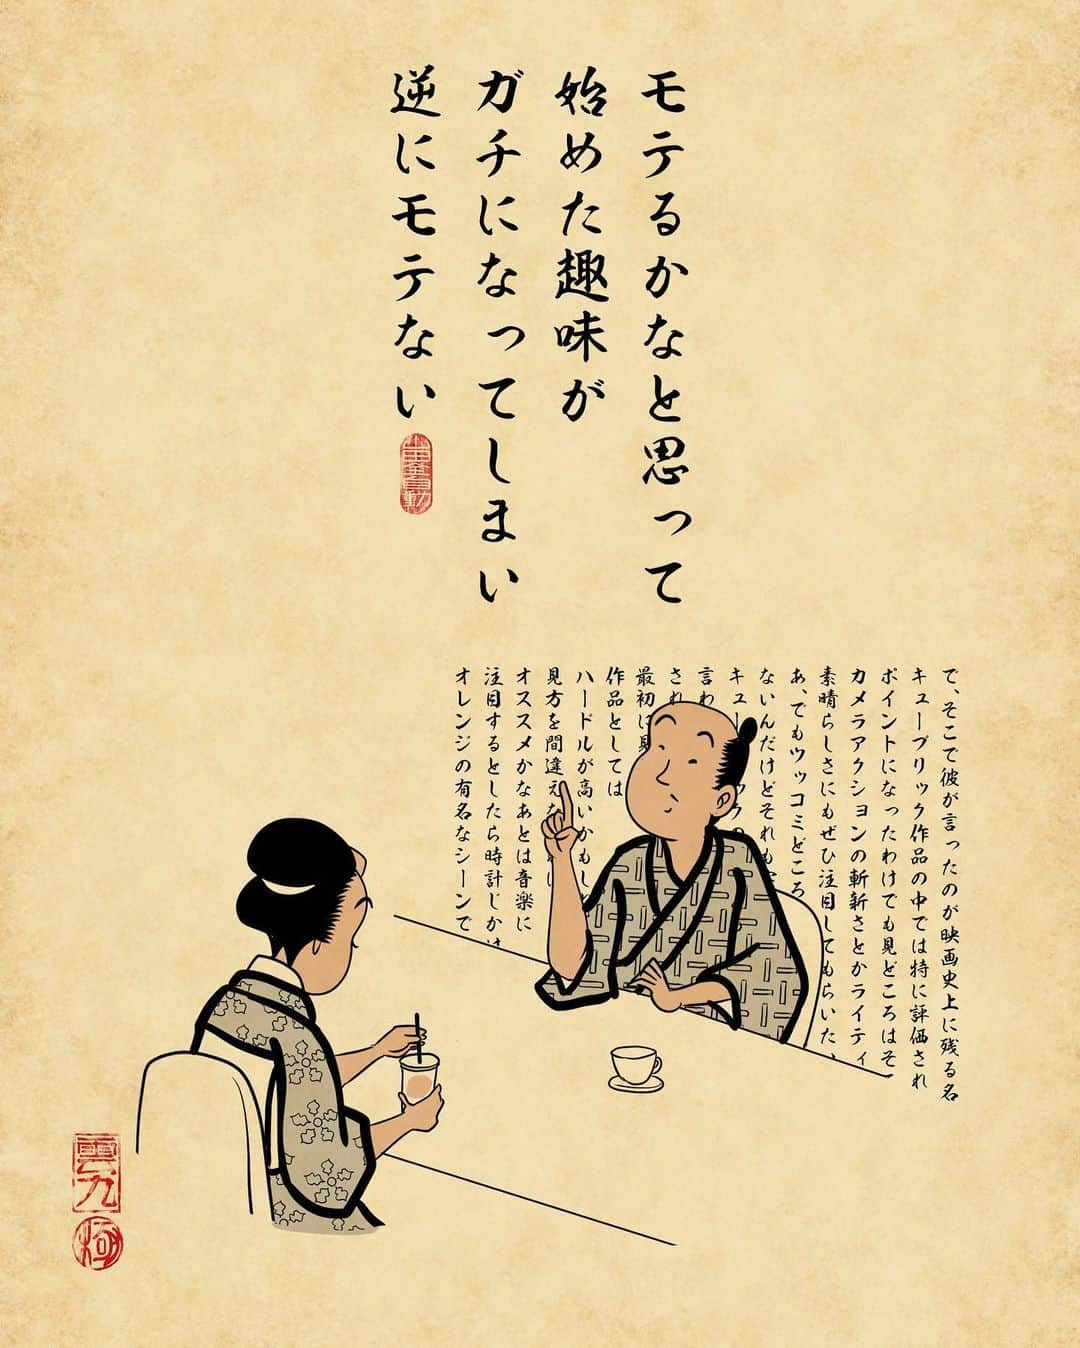 モテるかなと思って
始めた趣味が
ガチになってしまい
逆にモテない
山田全自動
で、そこで彼が言ったのが映画史上に残る名
キューブリック作品の中では特に評価され
ポイントになったわけでも見どころはそ
カメラアクションの斬新さとかライティ
素晴らしさにもぜひ注目してもらいた、
あ、でもツッコミどころ
ないんだけどそれも
キュー
言わ
され
最初に見
作品としては
ハードルが高いかもし
見方を間違えな
オススメかなあとは音楽に
注目するとしたら時計じかけ
オレンジの有名なシーンで